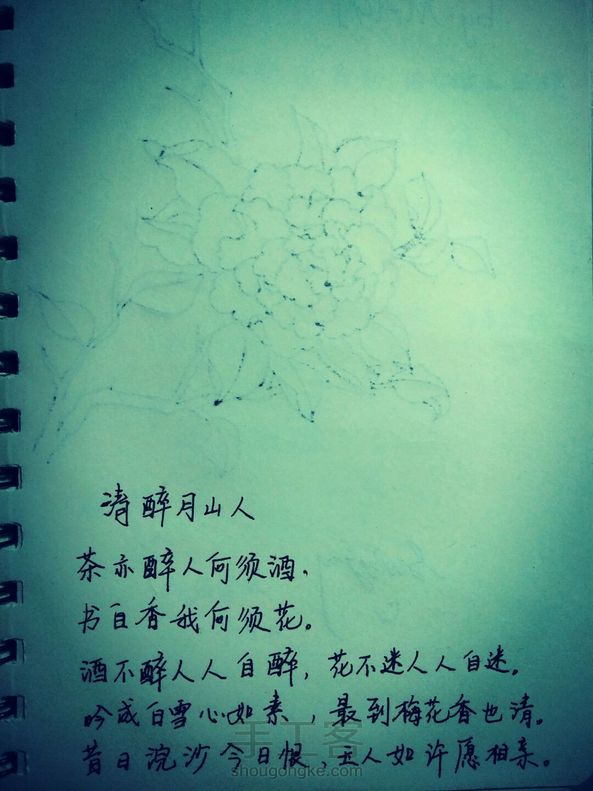 清醉月山人
茶亦醉人何须酒，
书自香我何须花。
酒不醉人人自醉，花不迷人人自迷。
吟成白雪心如素，最到梅花香也清。
昔日浣沙今日恨，玉人如许愿相亲。
手工客
shougongke.com